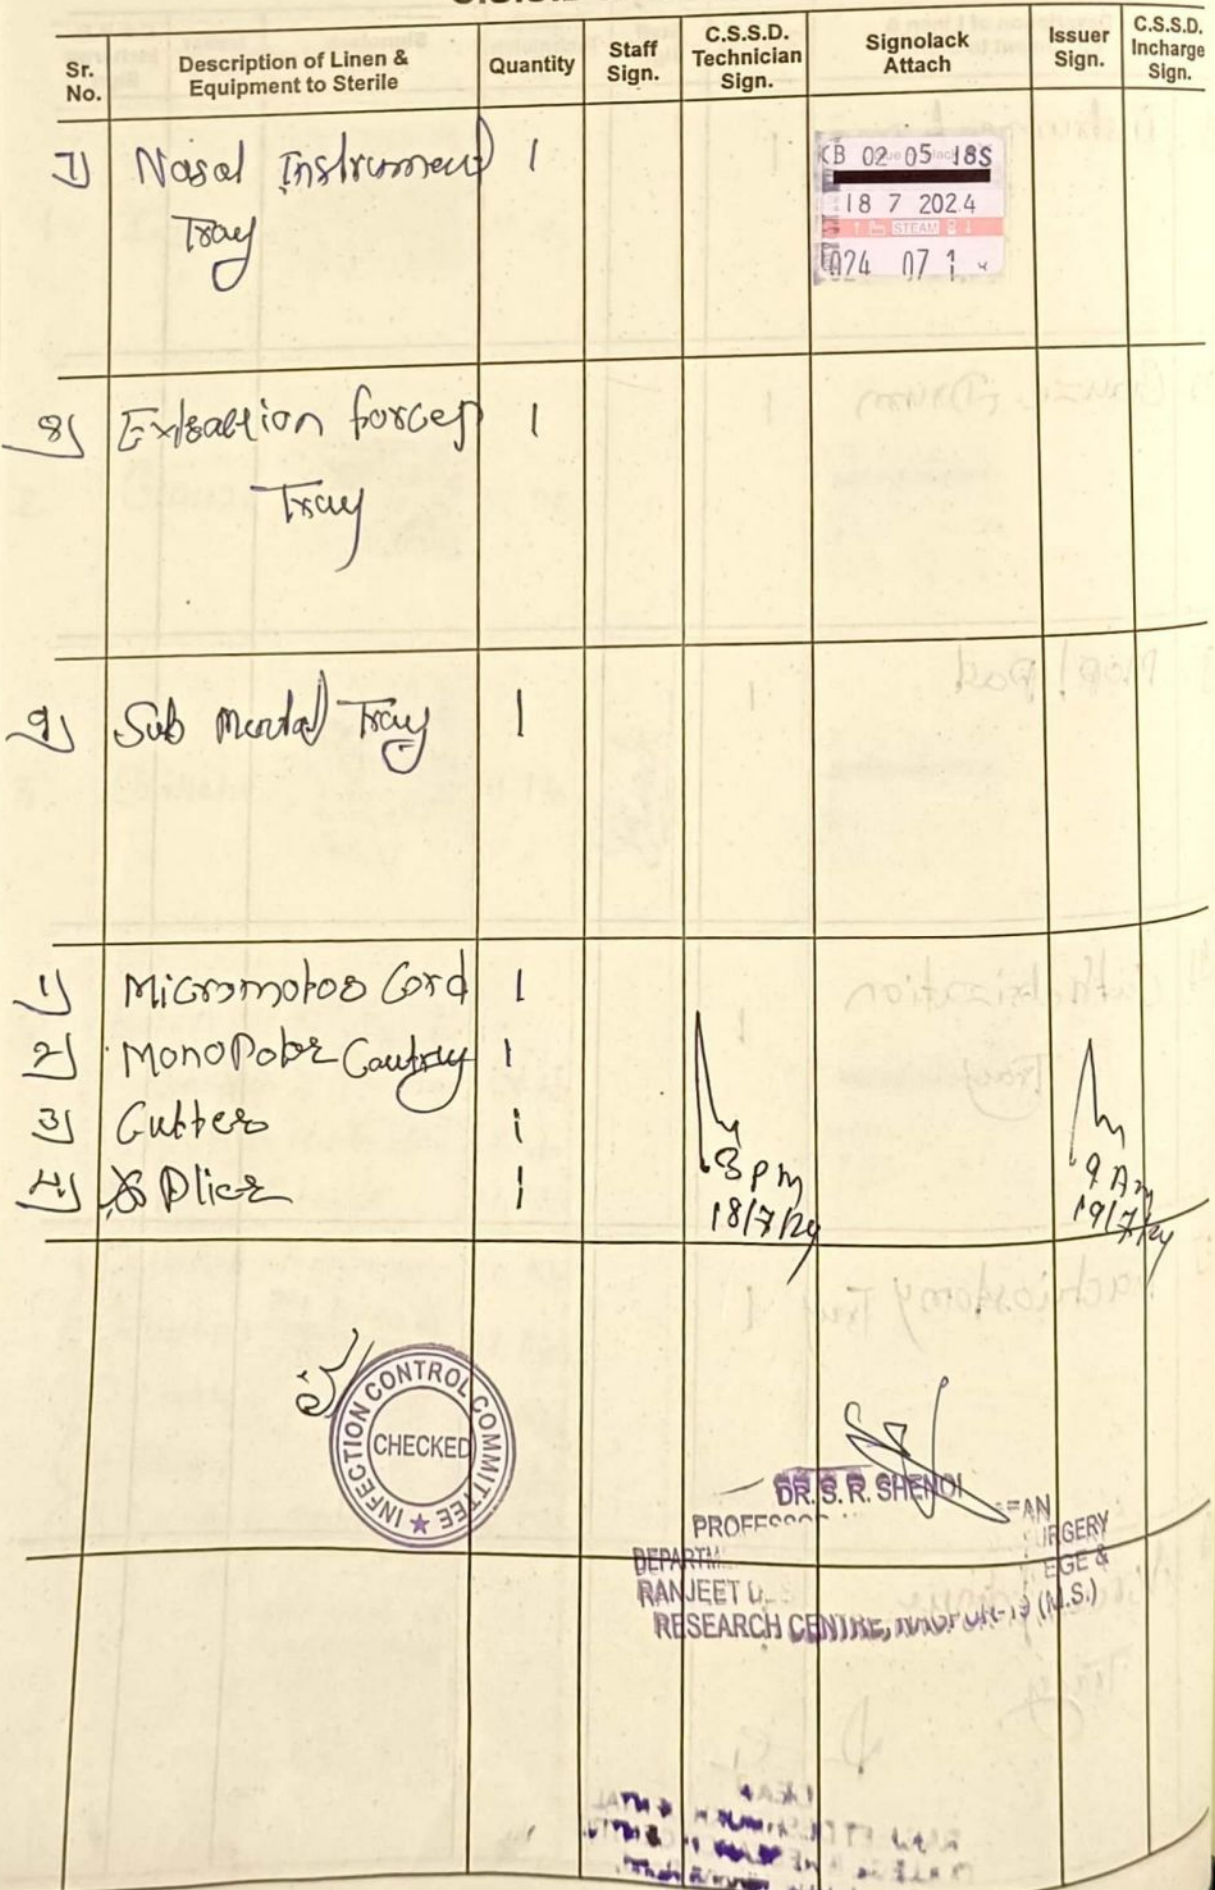 Sr. No. | Description of Linen & Equipment to Sterile | Quantity | Staff Sign. | C.S.S.D. Technician Sign. | Signolack Attach | Issuer Sign. | C.S.S.D. Incharge Sign.
7) Nasal Instrument 1
Tray
KB 02 05 18S
18 7 2024
STEAM
024 07 1
8) Extraction forcep 1
Tray
9) Sub Mental Tray 1
1) Micromotor Cord 1
2) MonoPolar Cautry 1
3) Cutter 1
4) Plier 1
3 pm
18/7/24
9 Am
19/7/24
INFECTION CONTROL COMMITTEE
CHECKED
DR. S. R. SHENOI
RANJEET
RESEARCH CENTRE, (M.S.)